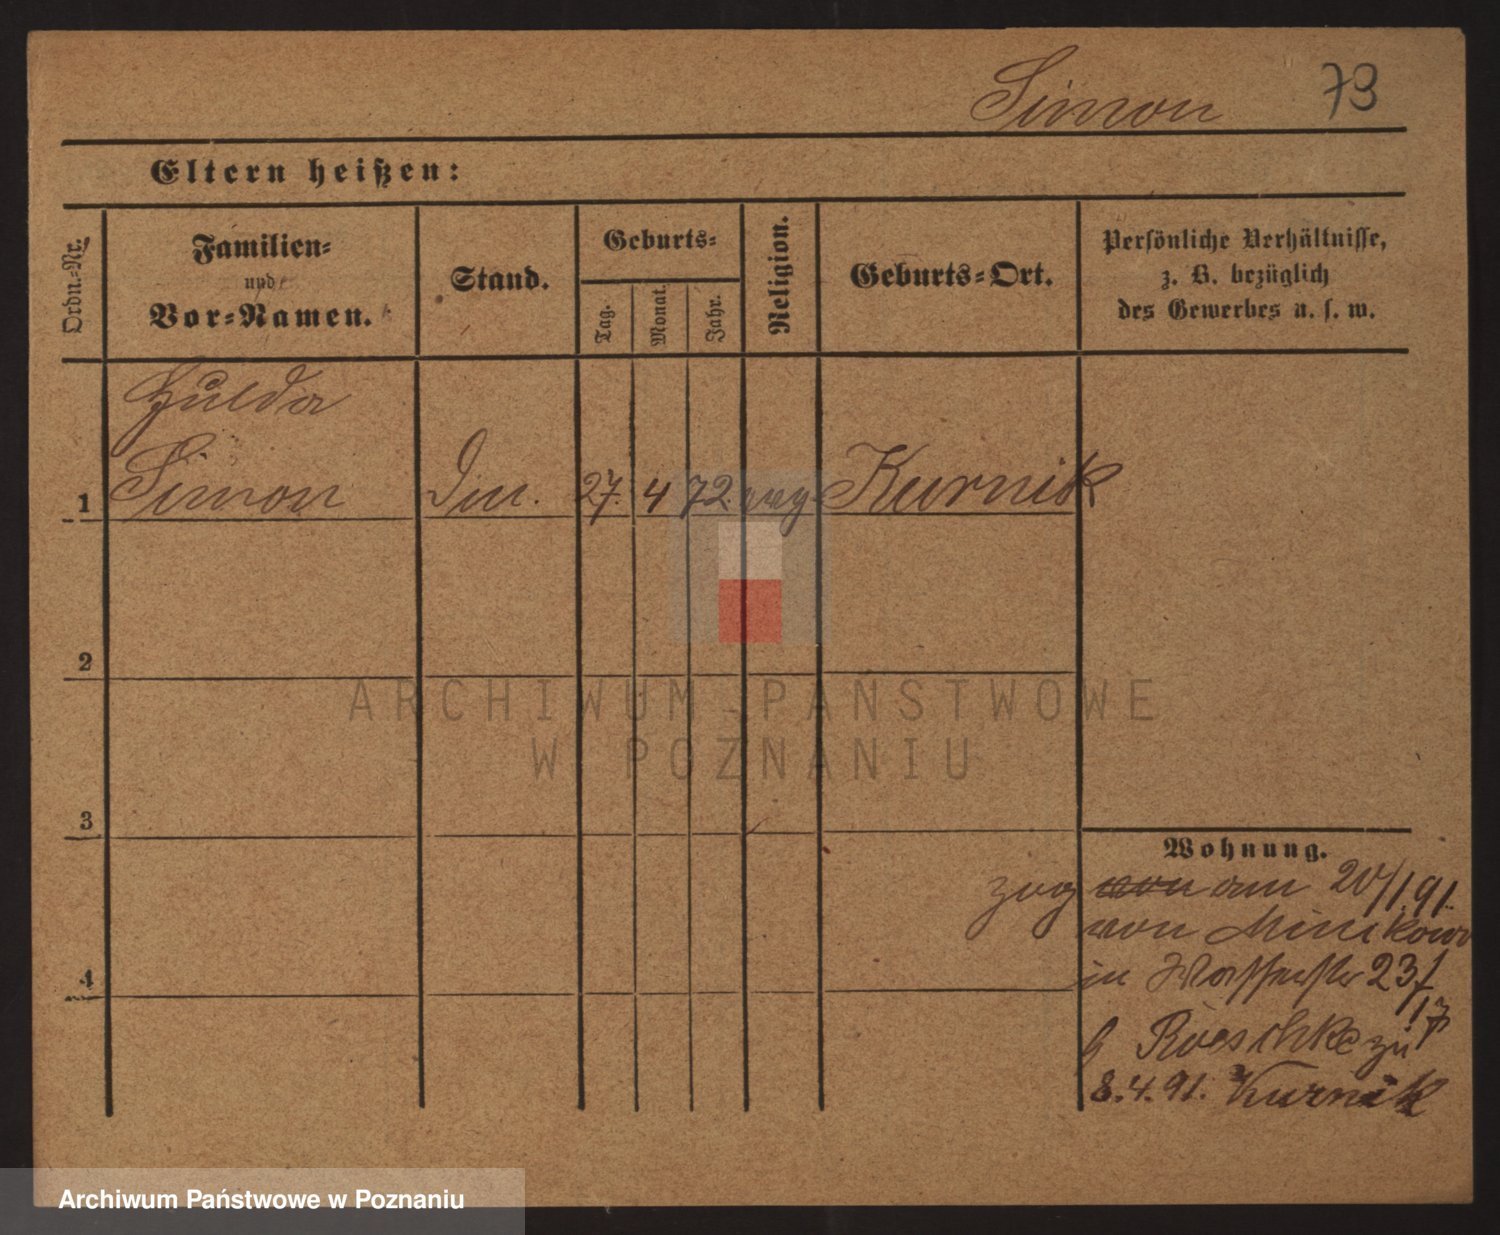 Simon 73
Eltern heißen:
Ordn.-Nr.
Familien-
und
Vor-Namen.
Stand.
Geburts-
Tag.
Monat.
Jahr.
Religion.
Geburts-Ort.
Persönliche Verhältnisse,
z. B. bezüglich
des Gewerbes u. s. w.
Hulda
1 Simon 27. 4 72. Kurnik
2
ARCHIWUM PAŃSTWOWE
W POZNANIU
3
Wohnung.
zog von am 20/1.91.
4
von Minikowo
in 23/17
Roeschke zu
8.4.91. Kurnik
Archiwum Państwowe w Poznaniu